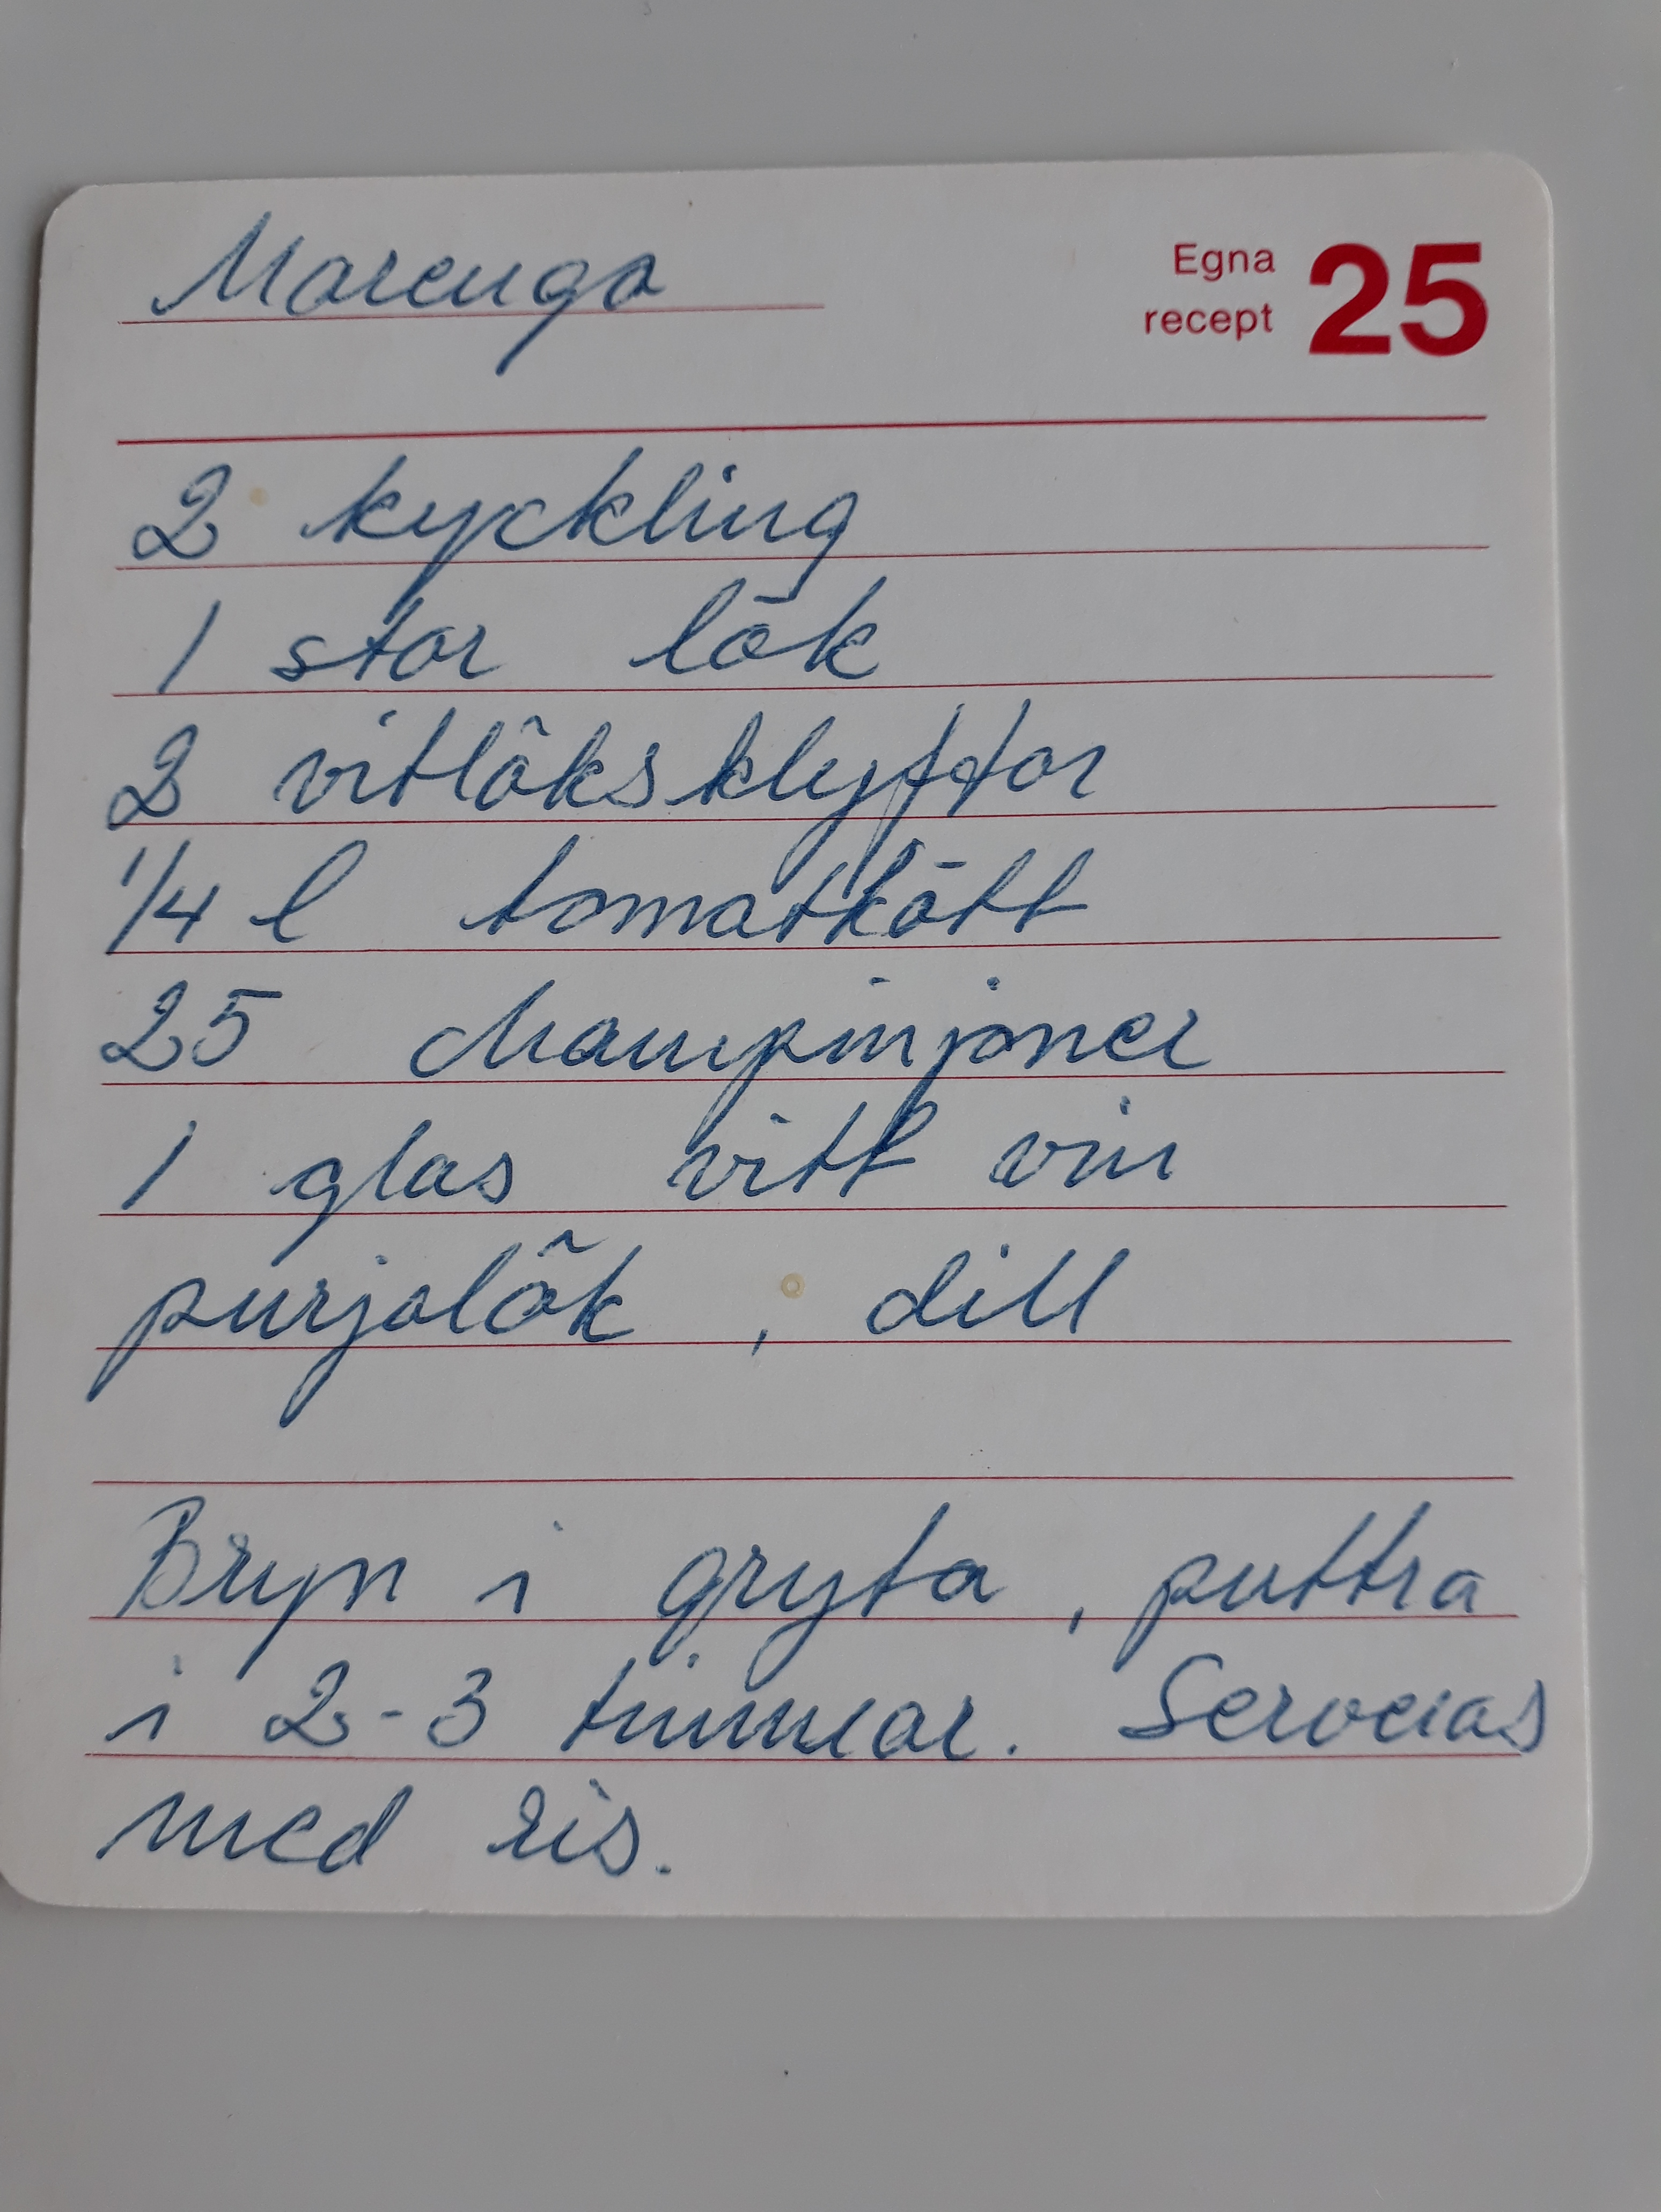 Marengo
Egna
recept 25
2 kyckling
1 stor lök
2 vitlöksklyftor
1/4 l tomatkött
25 champinjoner
1 glas vitt vin
purjolök, dill
Bryn i gryta, puttra
i 2-3 timmar. Serveras
med ris.